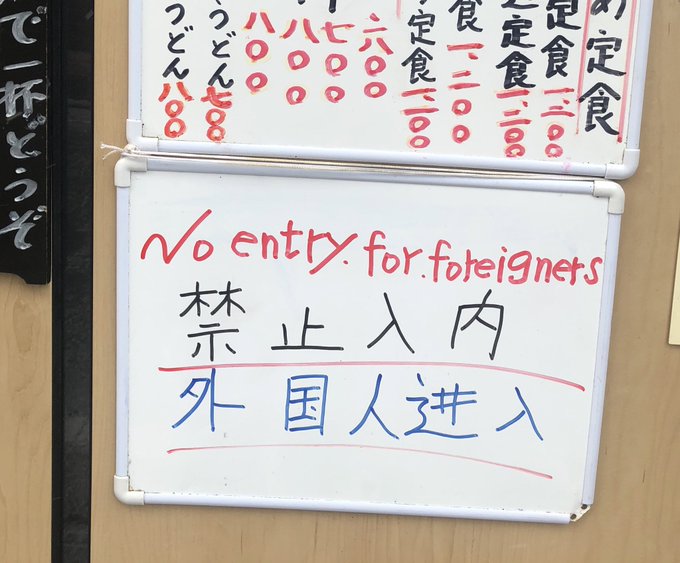 め定食
定食 一、二〇〇
定食 一、二〇〇
食 一、二〇〇
定食 一、一〇〇
八〇〇
七〇〇
八〇〇
八〇〇
うどん 七〇〇
うどん 八〇〇
で一杯どうぞ
No entry.for.foreigners
禁止入内
外国人进入